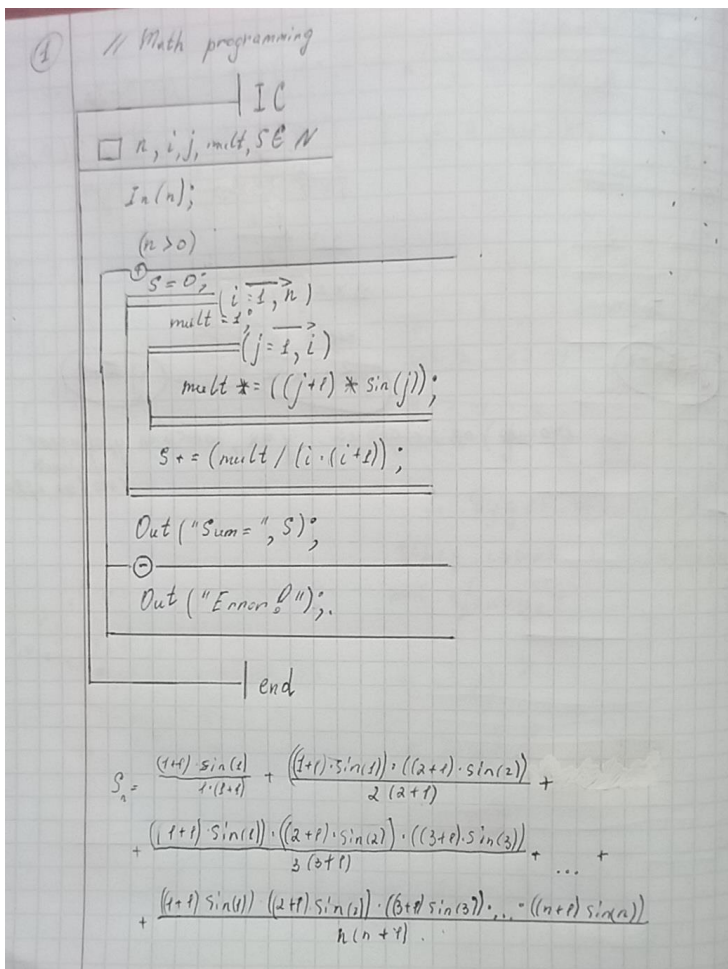 ① // Math programming
IC
□ n, i, j, milt, S ∈ N
In(n);
(n > 0)
+
S = 0;
(i = 1, n)
mult = 1;
(j = 1, i)
mult *= ((j+1) * sin(j));
S += (mult / (i · (i+1));
Out ("Sum = ", S);
−
Out ("Error!");.
end
Sₙ = (1+1)·sin(1) / 1·(1+1) + ((1+1)·sin(1))·((2+1)·sin(2)) / 2(2+1) +
+ ((1+1)·sin(1))·((2+1)·sin(2))·((3+1)·sin(3)) / 3(3+1) + ... +
+ ((1+1) sin(1))·((2+1) sin(2))·((3+1) sin(3))·...·((n+1) sin(n)) / n(n+1).